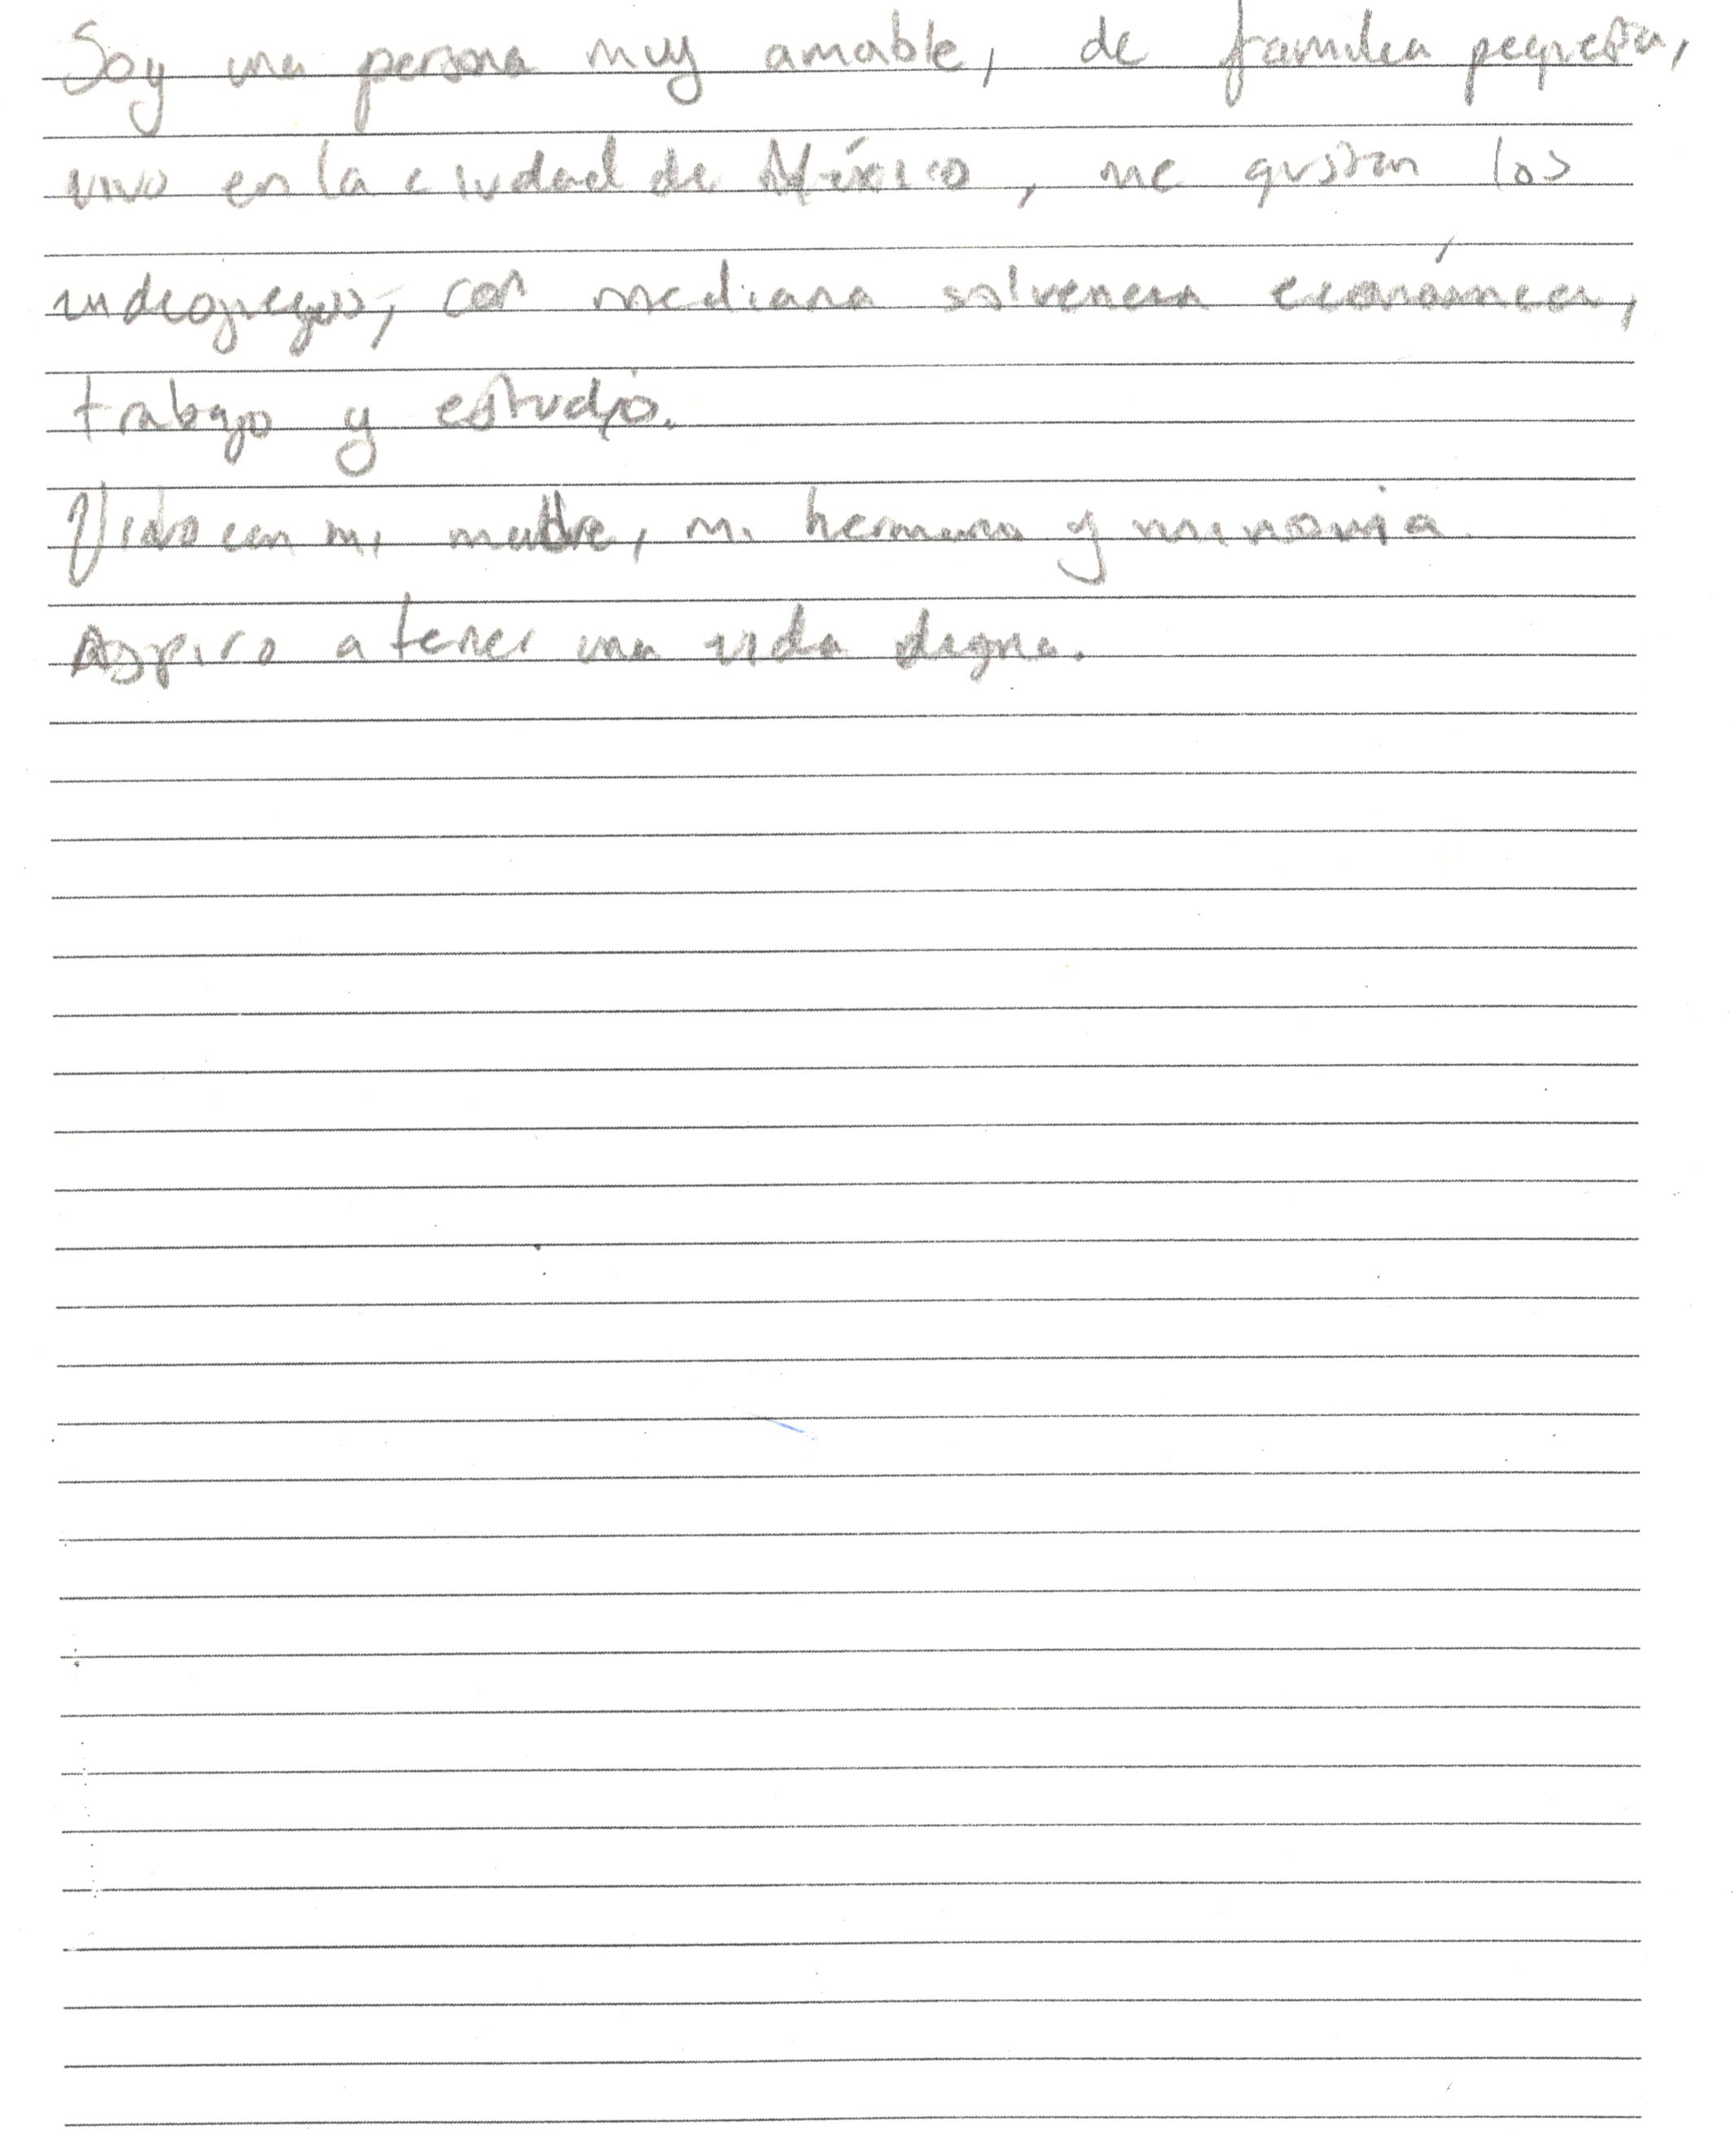 Soy una persona muy amable, de familia pequeña,
vivo en la ciudad de México, me gustan los
videojuegos, con mediana solvencia económica,
trabajo y estudio.
Vivo con mi madre, mi hermana y mi novia.
Aspiro a tener una vida digna.